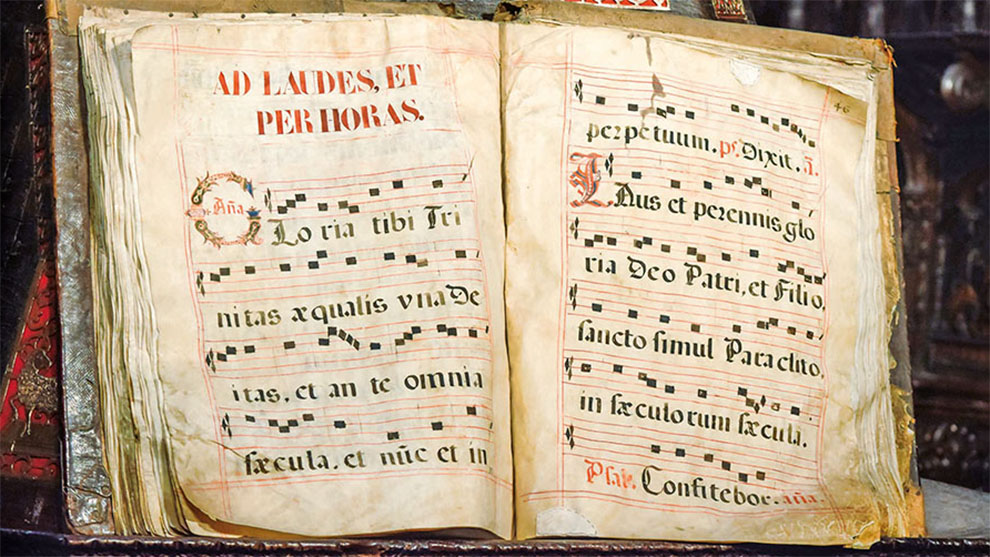 AD LAUDES, ET
PER HORAS.
Aña
GLo ria tibi Tri
nitas æqualis vna De
itas, et an te omnia
sæcula, et nũc et in
46
perpetuum. ps. Dixit. ã.
LAus et perennis glo
ria Deo Patri, et Filio,
sancto simul Paraclito,
in sæculorum sæcula.
Psal. Confitebor. aña